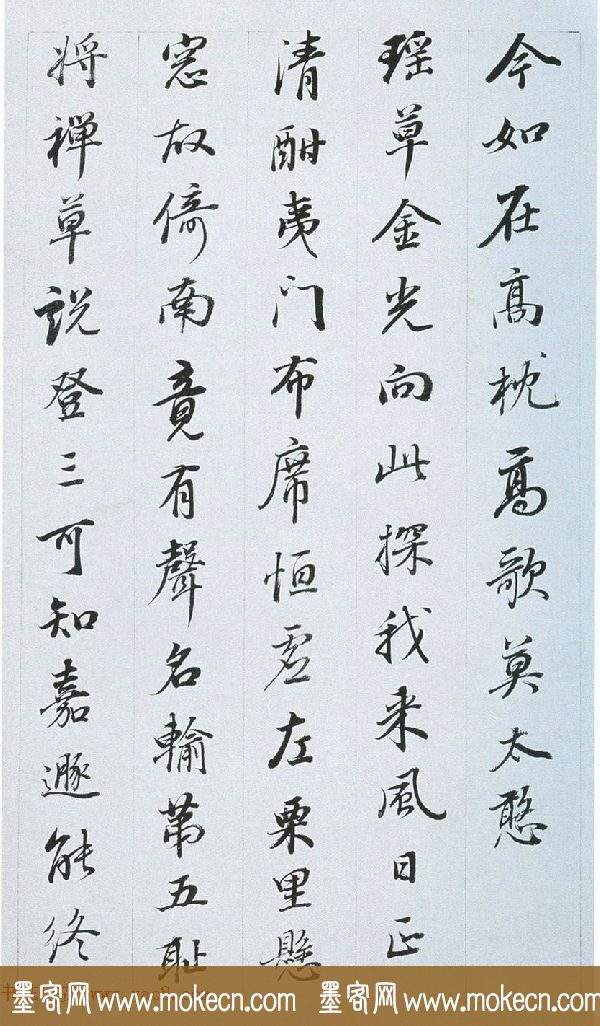 今如在高枕高歌莫太憨
瑶草金光向此探我来風日正
清酣夷门布席恒虚左栗里懸
窓故倚南竟有聲名輸第五耻
将禪草説登三可知嘉遯能终
墨客网 www.mokecn.com 墨客网 www.mokecn.com